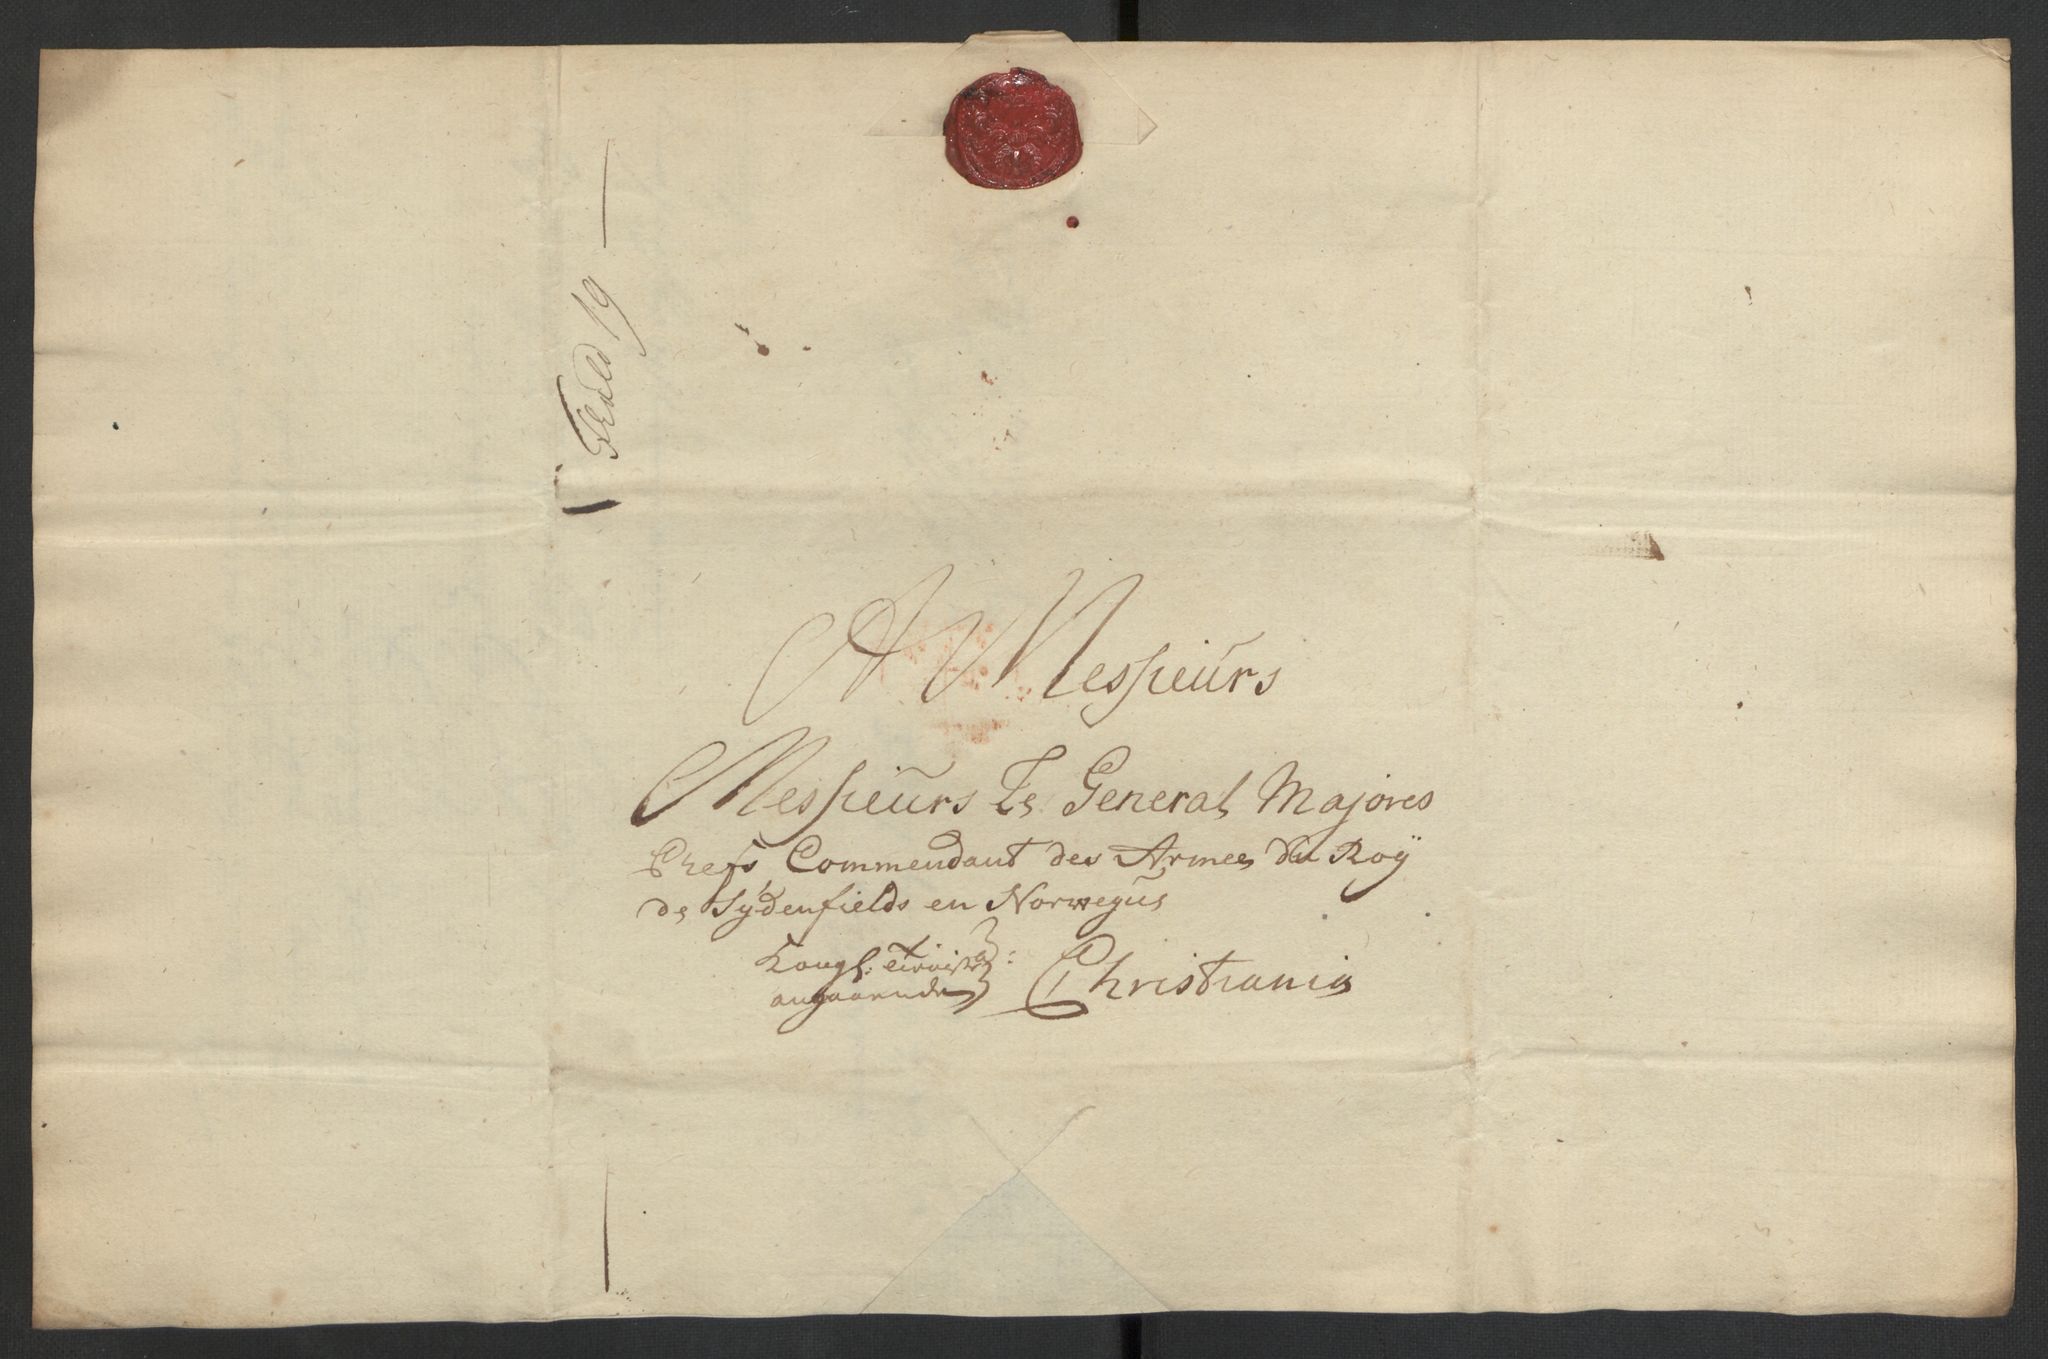 A Messieurs
Messieurs Le General Majores
Chefs Commendant des Armees du Roÿ
de Sydenfields en Norwegus
Kongl: tieniste
angaaende
Christiania
19